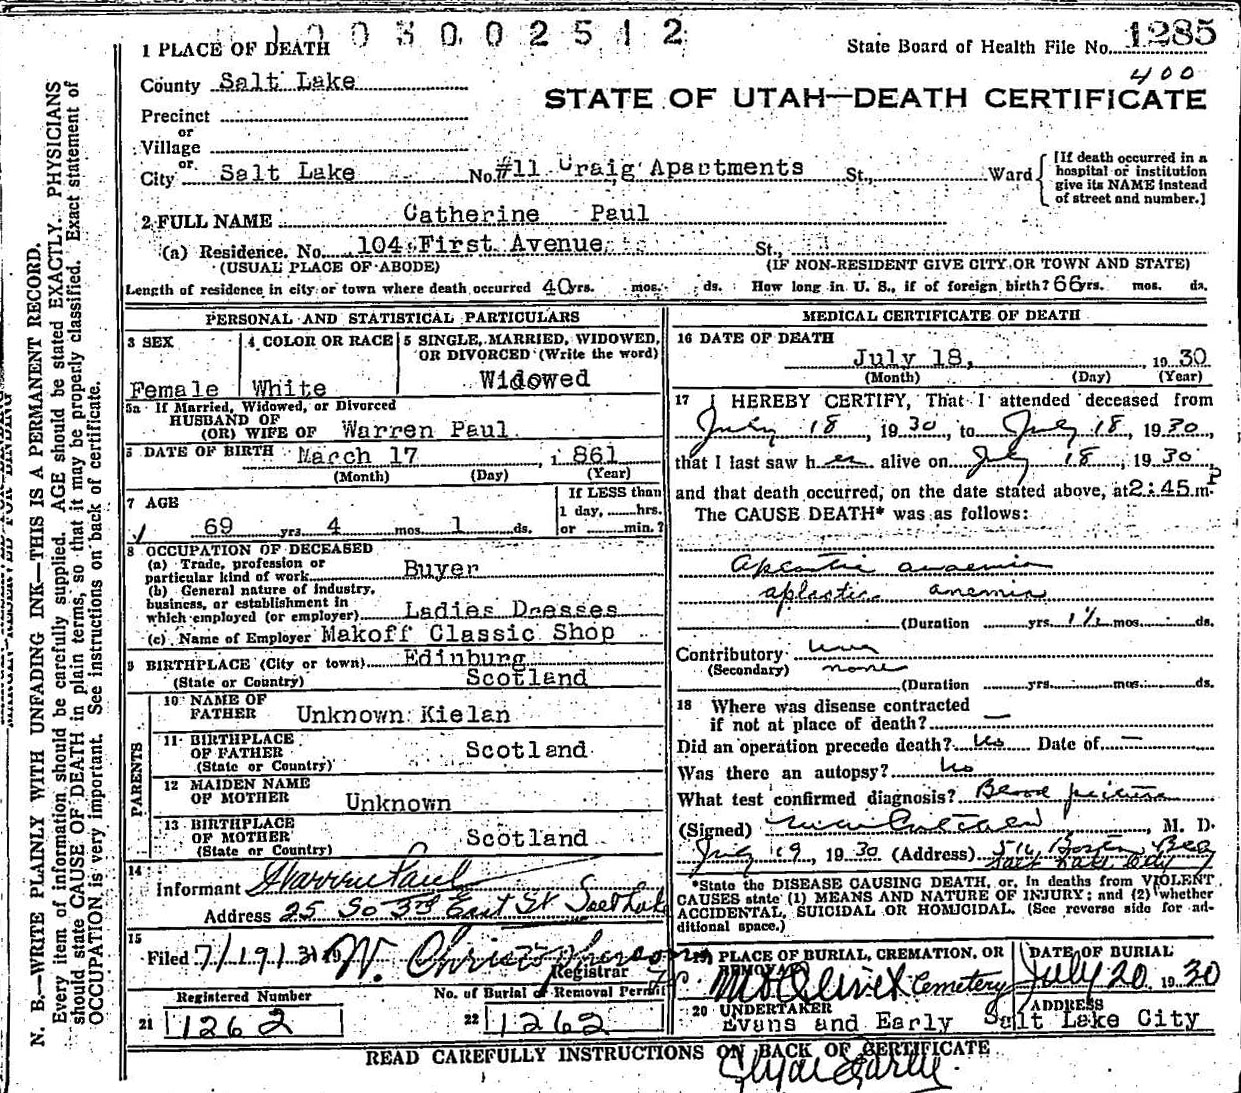 1003002512
1 PLACE OF DEATH
State Board of Health File No. 1285
400
County Salt Lake
STATE OF UTAH—DEATH CERTIFICATE
Precinct
or
Village
or
City Salt Lake No. #11 Craig Apartments St., Ward
[If death occurred in a
hospital or institution
give its NAME instead
of street and number.]
2 FULL NAME Catherine Paul
(a) Residence. No. 104 First Avenue St.,
(USUAL PLACE OF ABODE) (IF NON-RESIDENT GIVE CITY OR TOWN AND STATE)
Length of residence in city or town where death occurred 40 yrs. mos. ds. How long in U. S., if of foreign birth? 66 yrs. mos. ds.
PERSONAL AND STATISTICAL PARTICULARS
3 SEX 4 COLOR OR RACE 5 SINGLE, MARRIED, WIDOWED,
OR DIVORCED (Write the word)
Female White Widowed
5a If Married, Widowed, or Divorced
HUSBAND OF
(OR) WIFE OF Warren Paul
6 DATE OF BIRTH March 17, 1861
(Month) (Day) (Year)
7 AGE
If LESS than
1 day, hrs.
or min.?
69 yrs. 4 mos. 1 ds.
8 OCCUPATION OF DECEASED
(a) Trade, profession or
particular kind of work Buyer
(b) General nature of industry,
business, or establishment in
which employed (or employer) Ladies Dresses
(c) Name of Employer Makoff Classic Shop
9 BIRTHPLACE (City or town) Edinburg
(State or Country) Scotland
PARENTS
10 NAME OF
FATHER Unknown Kielan
11 BIRTHPLACE
OF FATHER Scotland
(State or Country)
12 MAIDEN NAME
OF MOTHER Unknown
13 BIRTHPLACE
OF MOTHER Scotland
(State or Country)
14
Informant Warren Paul
Address 25 So 3rd East St Salt Lake
15
Filed 7/19/3 19 W. Christopherson
Registrar
Registered Number No. of Burial or Removal Permit
21 1262 22 1262
MEDICAL CERTIFICATE OF DEATH
16 DATE OF DEATH
July 18, 1930
(Month) (Day) (Year)
17 I HEREBY CERTIFY, That I attended deceased from
July 18, 1930, to July 18, 1930,
that I last saw her alive on July 18, 1930
and that death occurred, on the date stated above, at 2:45 P m.
The CAUSE DEATH* was as follows:
Aplastic anaemia
aplastic anemia
(Duration yrs. 1½ mos. ds.
Contributory none
(Secondary) none
(Duration yrs. mos. ds.
18 Where was disease contracted
if not at place of death? —
Did an operation precede death? No Date of —
Was there an autopsy? No
What test confirmed diagnosis? Blood picture
(Signed) , M. D.
July 19, 1930 (Address) 516 Boston Bldg
Salt Lake City
*State the DISEASE CAUSING DEATH, or, in deaths from VIOLENT
CAUSES state (1) MEANS AND NATURE OF INJURY; and (2) whether
ACCIDENTAL, SUICIDAL OR HOMICIDAL. (See reverse side for ad-
ditional space.)
19 PLACE OF BURIAL, CREMATION, OR
REMOVAL
Mt Olivet Cemetery
DATE OF BURIAL
July 20, 1930
20 UNDERTAKER ADDRESS
Evans and Early Salt Lake City
READ CAREFULLY INSTRUCTIONS ON BACK OF CERTIFICATE
Clyde Early
MARGIN RESERVED FOR BINDING
N. B.—WRITE PLAINLY WITH UNFADING INK—THIS IS A PERMANENT RECORD.
Every item of information should be carefully supplied. AGE should be stated EXACTLY. PHYSICIANS
should state CAUSE OF DEATH in plain terms, so that it may be properly classified. Exact statement of
OCCUPATION is very important. See instructions on back of certificate.